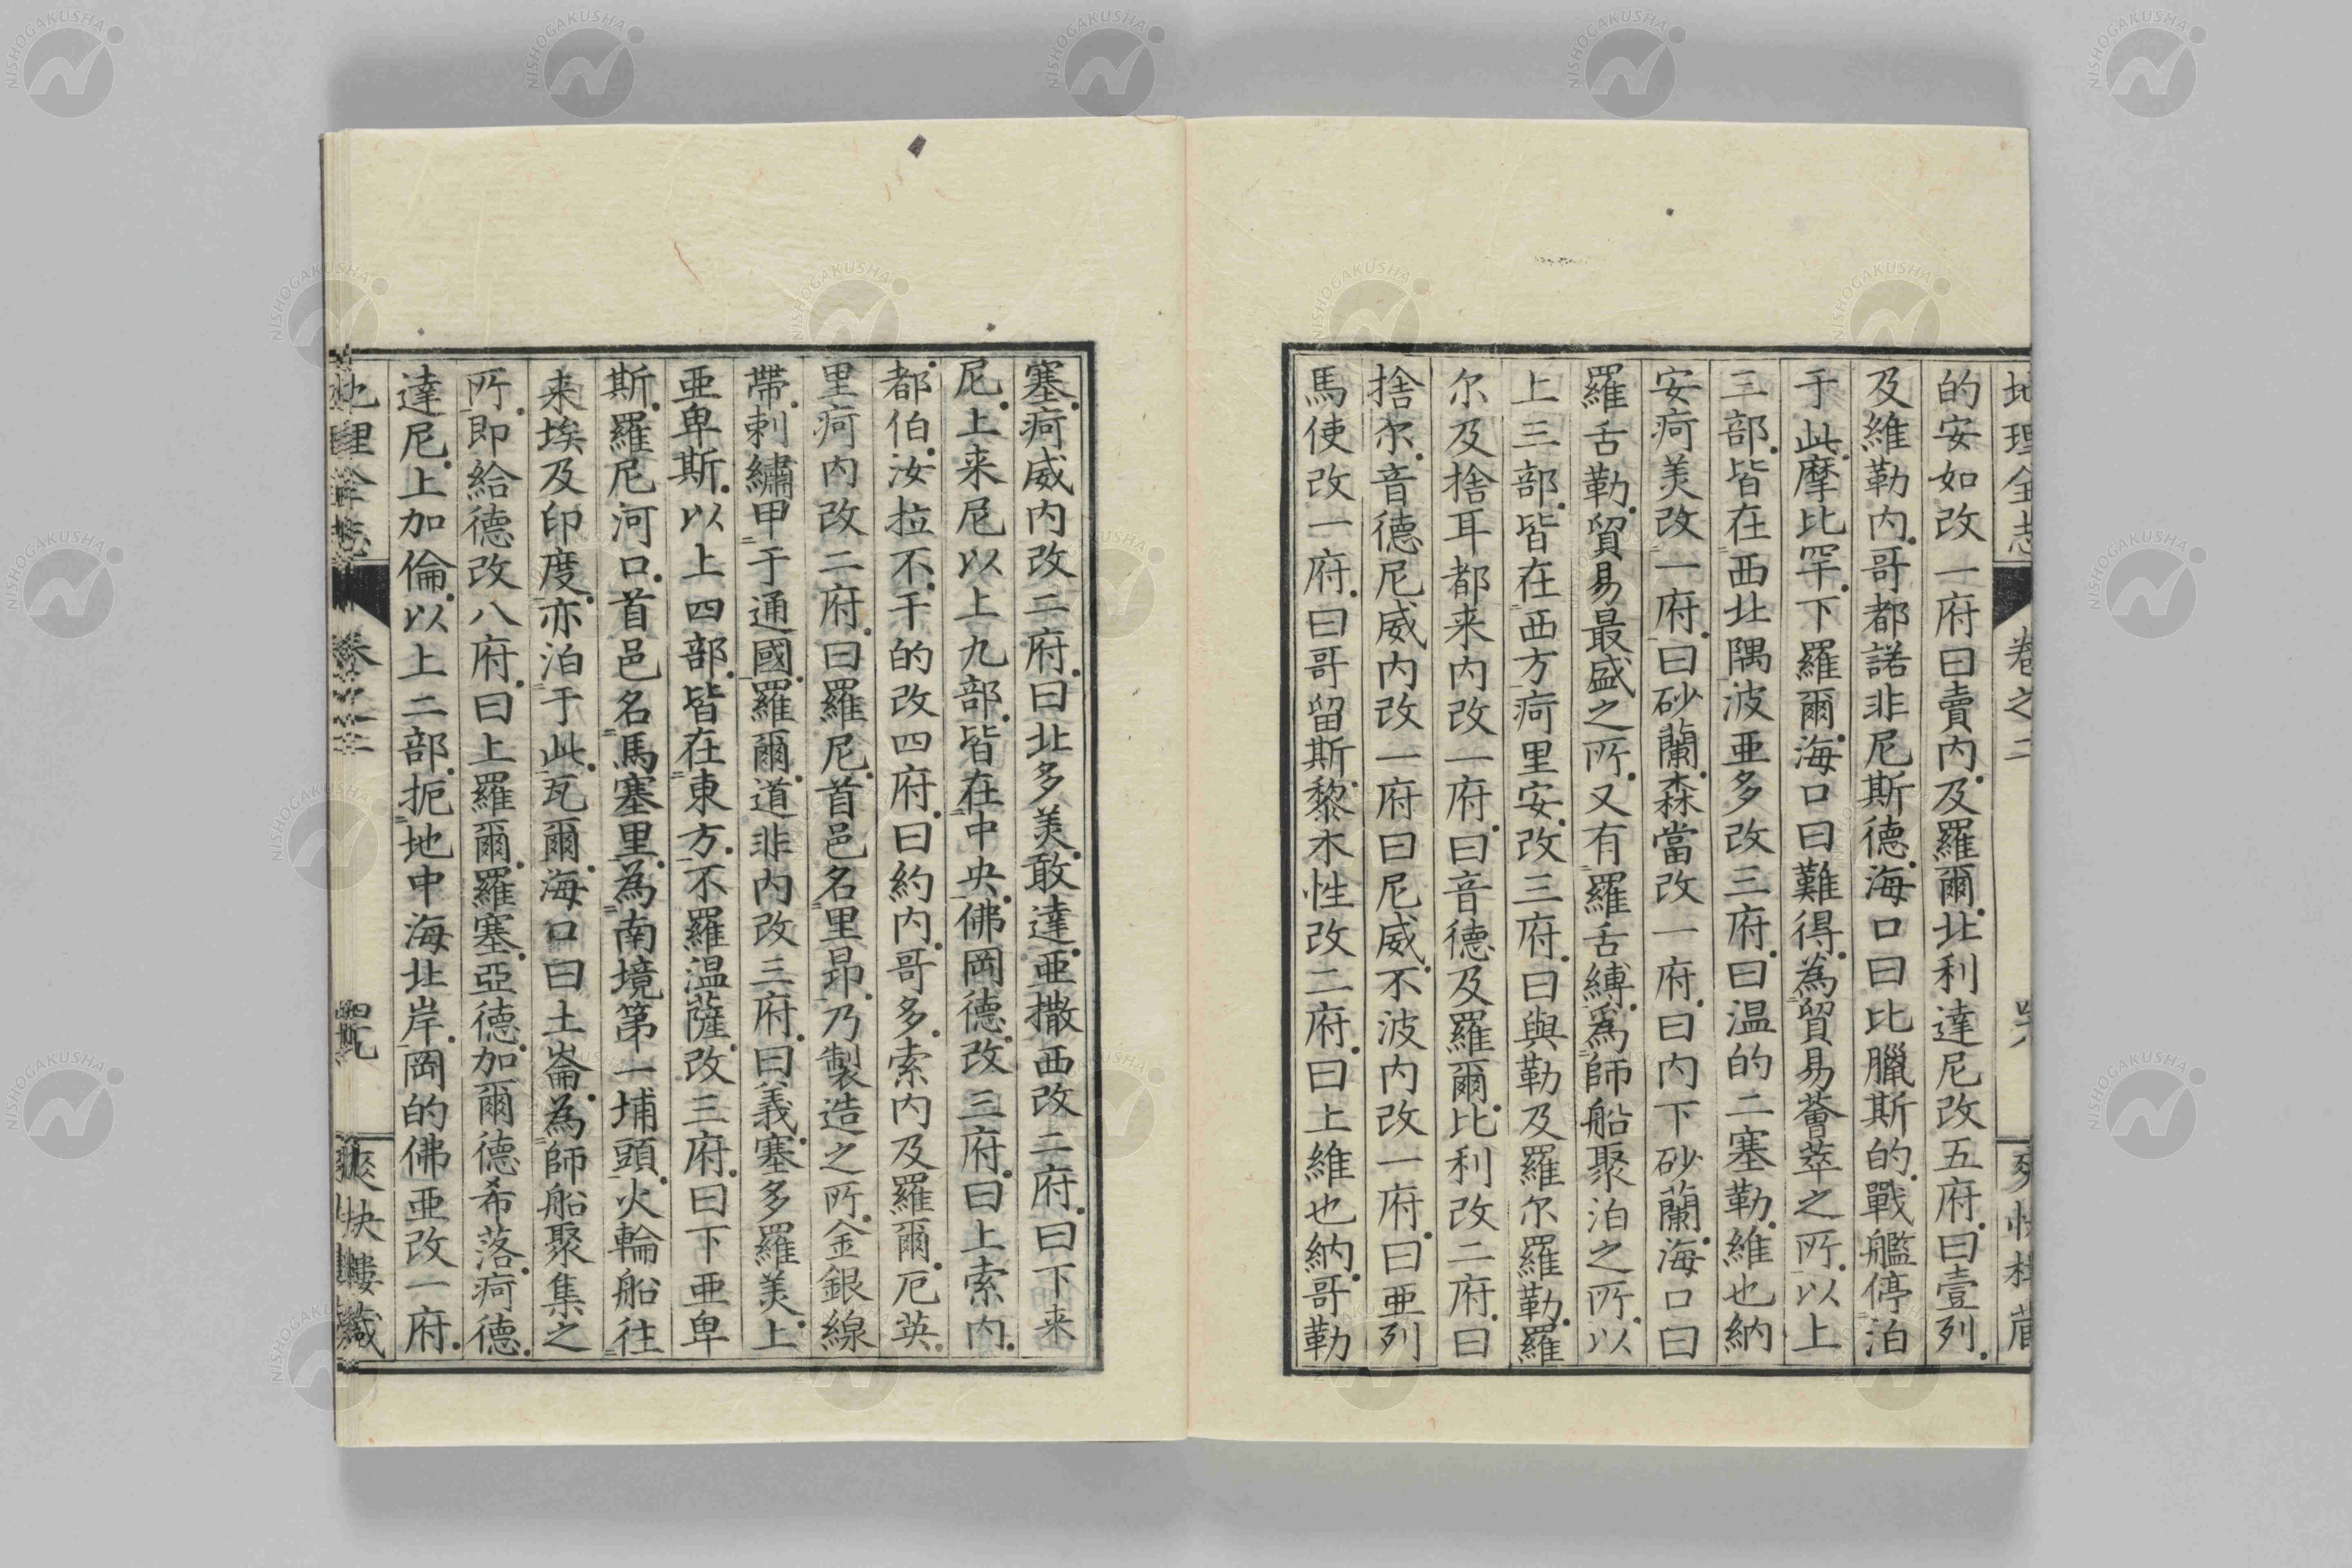 地理全志 卷之二
的安如改一府曰賣内及羅爾北利達尼改五府曰壹列
及維勒内哥都諾非尼斯德海口曰比臘斯的戰艦停泊
于此摩比罕下羅爾海口曰難得為貿易薈萃之所以上
三部皆在西北隅波亜多改三府曰温的二塞勒維也納
安疴美改一府曰砂蘭森當改一府曰内下砂蘭海口曰
羅舌勒貿易最盛之所又有羅舌縛爲師船聚泊之所以
上三部皆在西方疴里安改三府曰與勒及羅尔羅勒羅
尔及捨耳都来内改一府曰音德及羅爾比利改二府曰
捨尔音德尼威内改一府曰尼威不波内改一府曰亜列
馬使改一府曰哥留斯黎木性改二府曰上維也納哥勒
塞疴威内改二府曰北多美敢達亜撒西改二府曰下来
尼上来尼以上九部皆在中央佛岡德改三府曰上索内
都伯汝拉不干的改四府曰約内哥多索内及羅爾厄英
里疴内改二府曰羅尼首邑名里昴乃製造之所金銀線
帶刺繡甲于通國羅爾道非内改三府曰義塞多羅美上
亜卑斯以上四部皆在東方不羅温薩改三府曰下亜卑
斯羅尼河口首邑名馬塞里為南境第一埔頭火輪船往
来埃及印度亦泊于此瓦爾海口曰土崙為師船聚集之
所即給德改八府曰上羅爾羅塞亞德加爾德希落疴德
達尼上加倫以上二部扼地中海北岸岡的佛亜改一府
地理全志 卷之二 爽快樓藏